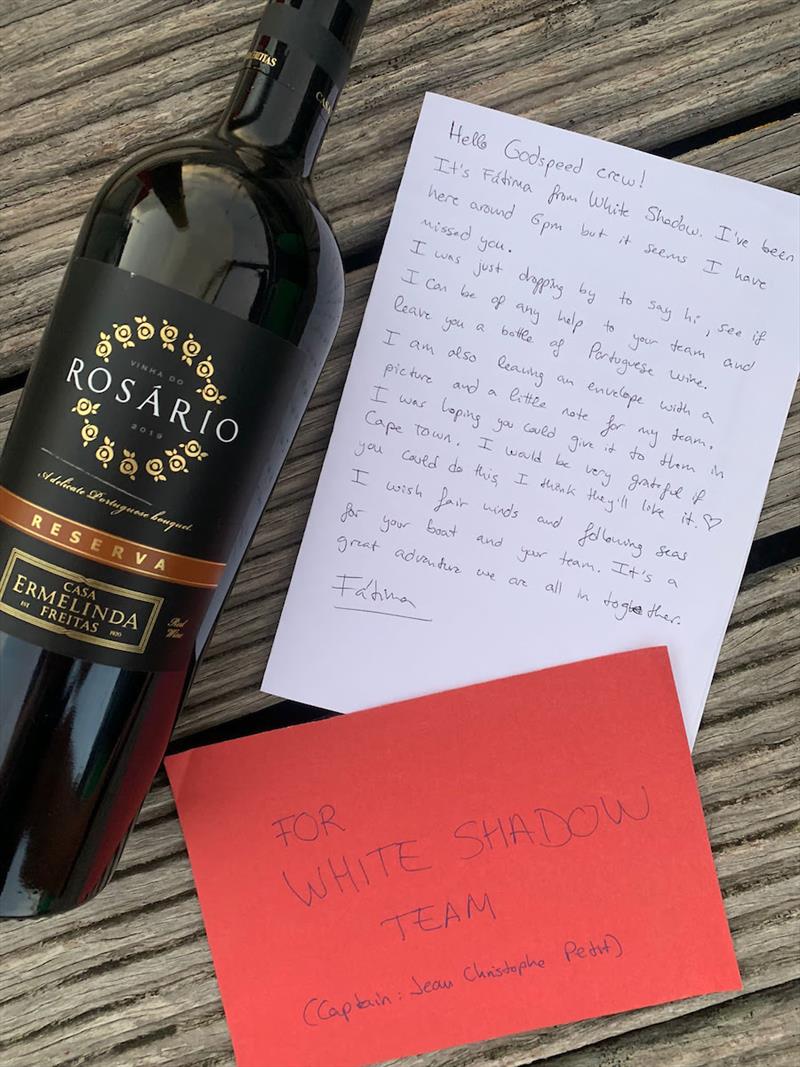 FREITAS
CASA
VINHA DO
ROSÁRIO
2019
A delicate Portuguese bouquet.
RESERVA
CASA
ERMELINDA
FREITAS
EST 1920
Red
Wine
Hello Godspeed crew!
It's Fátima from White Shadow. I've been
here around 6pm but it seems I have
missed you.
I was just dropping by to say hi, see if
I can be of any help to your team and
leave you a bottle of Portuguese wine.
I am also leaving an envelope with a
picture and a little note for my team.
I was hoping you could give it to them in
Cape Town. I would be very grateful if
you could do this, I think they'll like it. ♡
I wish fair winds and following seas
for your boat and your team. It's a
great adventure we are all in together.
Fátima
FOR
WHITE SHADOW
TEAM
(Captain: Jean Christophe Petit)